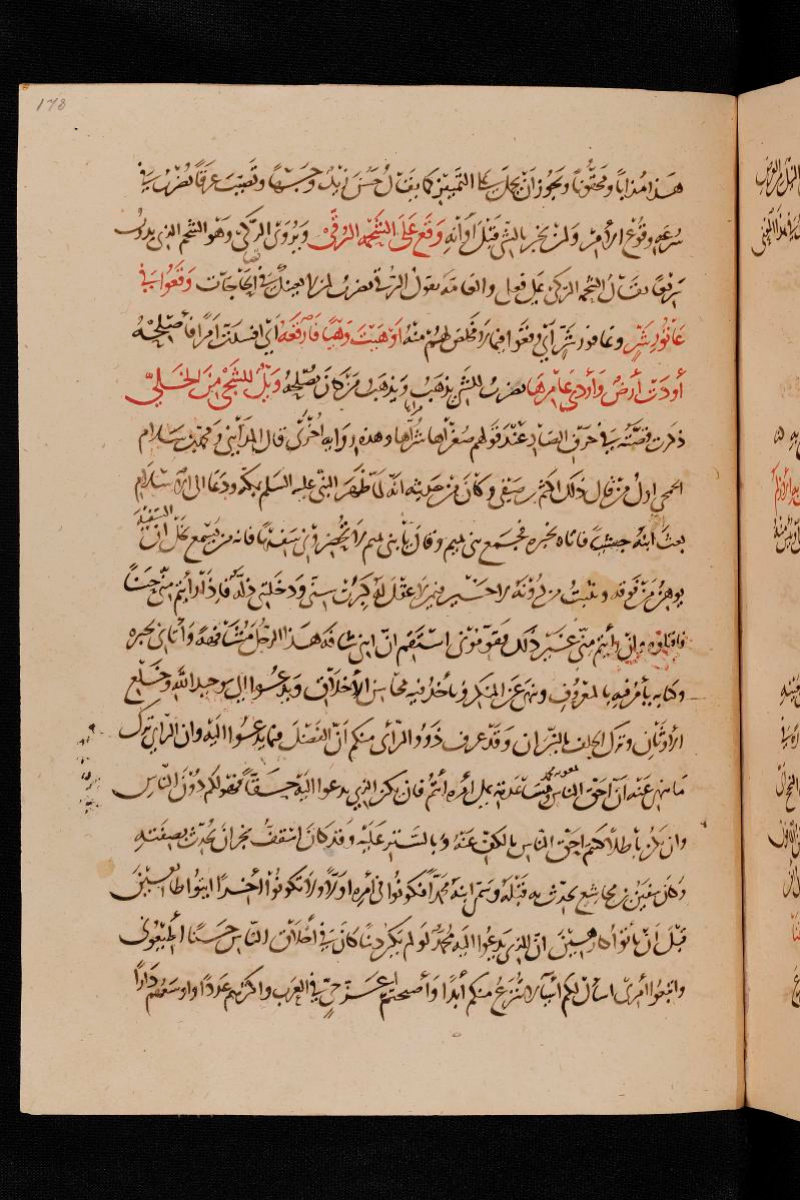 178
هذا مذابا ومحقونا ويجوز ان يحمل على التمييز كما يقال حسن زيد وجها وتصبب عرقا يضرب في
سرعة وقوع الامر ولمن يخبر بالشئ قبل اوانه وقع على الشحمة الرقى ويروى الركى وهو الشحم الذى يذوب
سريعا يقال الشحمة الركى على فعلى والعامة تقول الرقى يضرب لمن لا يعينك في الحاجات وقعوا في
عاثور شر وعافور شر اى وقعوا فيما لا مخلص لهم منه اوهيت وهيا فارقعه اى افسدت امرا فاصلحه
أودت أرض وأودى عامرها يضرب للشئ يذهب ويذهب من كان يصلحه ويل للشجى من الخلى
ذكرت قصته في حرف الصاد عند قولهم صغراها مراها شراها وهذه رواية اخرى قال المدائنى ومحمد بن سلام
الجمحى اول من قال ذلك اكثم بن صيفى وكان من حديثه انه لما ظهر النبى عليه السلم بمكة ودعا الى الاسلام
بعث ابنه حبيشا فاتاه بخبره فجمع بنى تميم وقال يا بنى تميم لا تحضرونى سفيها فانه من يسمع يخل ان السفيه
يوهن من فوقه ويثبت من دونه لا خير فيمن لا عقل له كبرت سنى ودخلتنى ذلة فاذا رأيتم منى حسنا
فاقبلوه وان رأيتم منى غير ذلك فقومونى استقم ان ابنى شافه هذا الرجل مشافهة وأتانى بخبره
وكتابه يأمر فيه بالمعروف وينهى عن المنكر ويأخذ فيه محاسن الأخلاق ويدعوا الى توحيد الله وخلع
الاوثان وترك الحلف بالنيران وقد عرف ذوو الرأى منكم ان الفضل فيما يدعوا اليه وان الرأى ترك
ما ينهى عنه ان احق الناس بمعونة محمد ومساعدته على امره أنتم فان يكن الذى يدعوا اليه حقا فهو لكم دون الناس
وان يكن باطلا كنتم احق الناس بالكف عنه وبالستر عليه وقد كان اسقف نجران يحدث بصفته
وكان سفين بن مجاشع يحدث به قبله وسمى ابنه محمدا فكونوا فى أمره اولا ولا تكونوا آخرا ايتوا طائعين
قبل ان تأتوا كارهين ان الذى يدعوا اليه محمد لو لم يكن دينا كان في أخلاق الناس حسنا أطيعونى
واتبعوا أمرى اسأل لكم أشياء لا تنزع منكم أبدا وأصبحتم اعز حى في العرب واكثرهم عددا واوسعهم دارا